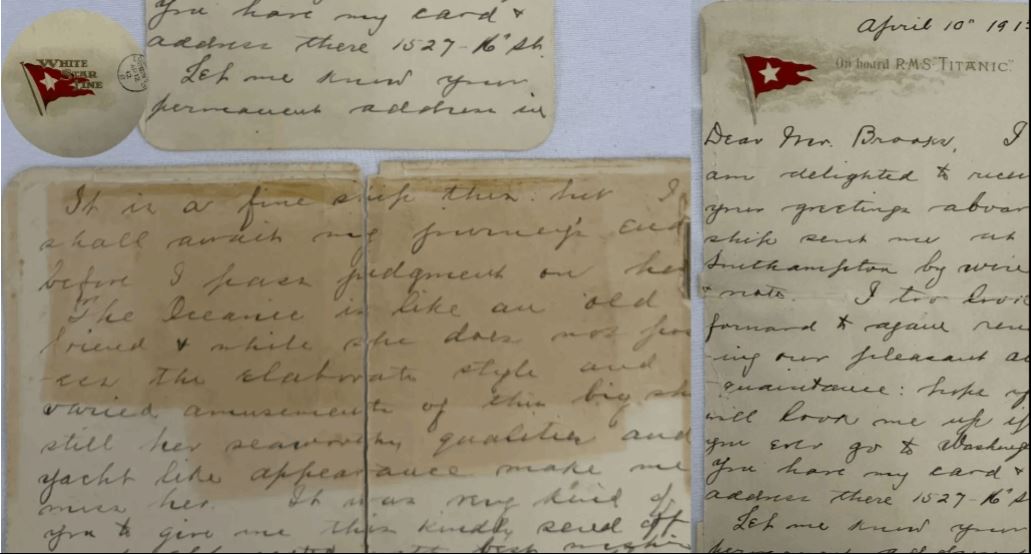 WHITE
STAR
LINE
You have my card &
address there 1527-16" St.
Let me know your
permanent address in
It is a fine ship this but I
shall await my journey's end
before I pass judgment on her
The Oceanic is like an old
friend & while she does not pos
-ess the elaborate style and
varied amusements of this big sh
still her seaworthy qualities and
yacht like appearance make me
miss her. It was very kind of
you to give me this kindly send off
best wishes
April 10" 191
On board R.M.S. "TITANIC."
Dear Mr. Brooks, I
am delighted to receiv
your greetings aboar
ship sent me at
Southampton by wire
& note. I too look
forward to again renew
-ing our pleasant ac
-quaintance: hope y
will look me up if
you ever go to Washing
You have my card &
address there 1527-16" S
Let me know your